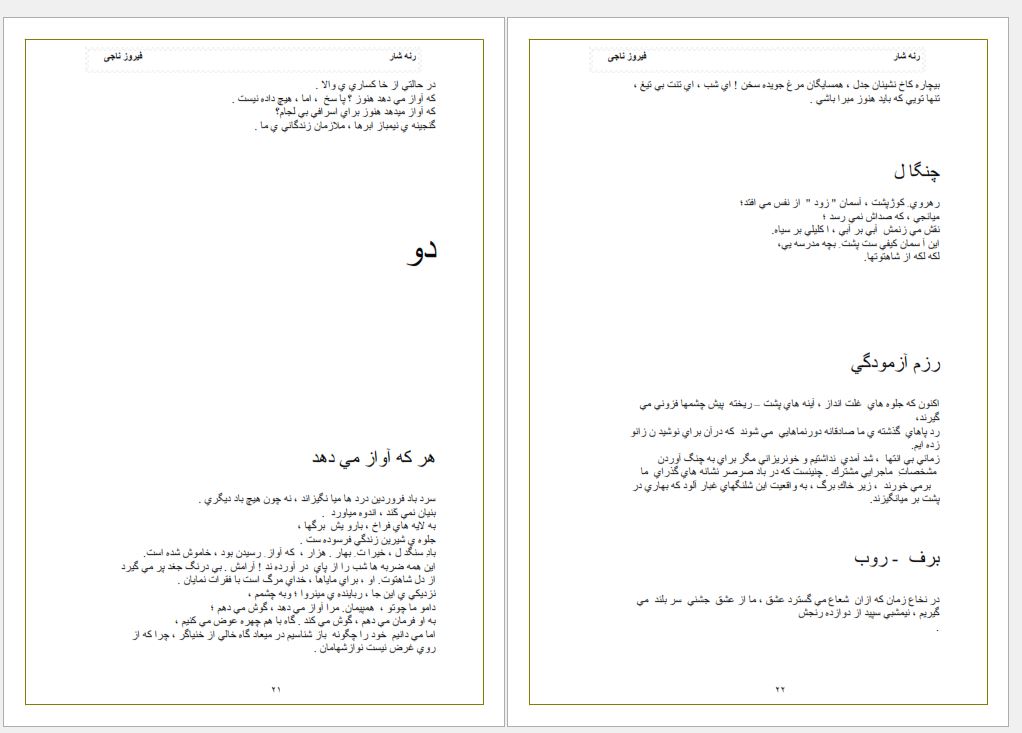 رنه شار
فیروز ناجی
در حالتي از خا کساري ي والا .
که آواز مي دهد هنوز ؟ پا سخ ، اما ، هيچ داده نيست .
که آواز ميدهد هنوز براي اسرافي بي لجام؟
گنجينه ي نيمباز ابرها ، ملازمان زندگاني ي ما .
دو
هر که آواز مي دهد
سرد باد فروردين درد ها ميا نگيزاند ، نه چون هيچ باد ديگري .
بنيان نمي کند ، اندوه مياورد .
به لايه هاي فراخ ، بارو يش برگها ،
جلوه ي شيرين زندگي فرسوده ست .
باد سنگد ل ، خيرا ت. بهار . هزار ، که آواز. رسيدن بود ، خاموش شده است.
اين همه ضربه ها شب را از پاي در آورده ند ! آرامش . بي درنگ جغد پر مي گيرد
از دل شاهتوت. او ، براي ماياها ، خداي مرگ است با فقرات نمايان .
نزديکي ي اين جا ، رباينده ي مينروا ؛ وبه چشمم ،
دامو ما چوتو ، همپيمان. مرا آواز مي دهد ، گوش مي دهم ؛
به او فرمان مي دهم ، گوش مي کند . گاه با هم چهره عوض مي کنيم ،
اما مي دانيم خود را چگونه باز شناسيم در ميعاد گاه خالي از خنياگر ، چرا که از
روي غرض نيست نوازشهامان .
۲۱
رنه شار
فیروز ناجی
بيچاره کاخ نشينان جدل ، همسايگان مرغ جويده سخن ! اي شب ، اي تنت بي تيغ ،
تنها تويي که بايد هنوز مبرا باشي .
چنگا ل
رهروي. کوژپشت ، آسمان " زود " از نفس مي افتد؛
ميانجي ، که صداش نمي رسد ؛
نقش مي زنمش آبي بر آبي ، ا کليلي بر سياه.
اين آ سمان کيفي ست پشت. بچه مدرسه يي،
لکه لکه از شاهتوتها.
رزم آزمودگي
اکنون که جلوه هاي غلت انداز ، آينه هاي پشت – ريخته پيش چشمها فزوني مي
گيرند،
رد پاهاي گذشته ي ما صادقانه دورنماهايي مي شوند که درآن براي نوشيد ن زانو
زده ايم.
زماني بي انتها ، شد آمدي نداشتيم و خونريزاني مگر براي به چنگ آوردن
مشخصات ماجرايي مشترك . چنينست که در باد صرصر نشانه هاي گذراي ما
برمي خورند ، زير خاك برگ ، به واقعيت اين شلنگهاي غبار آلود که بهاري در
پشت بر ميانگيزند.
برف - روب
در نخاع زمان که ازان شعاع مي گسترد عشق ، ما از عشق جشني سر بلند مي
گيريم ، نيمشبي سپيد از دوازده رنجش
.
۲۲